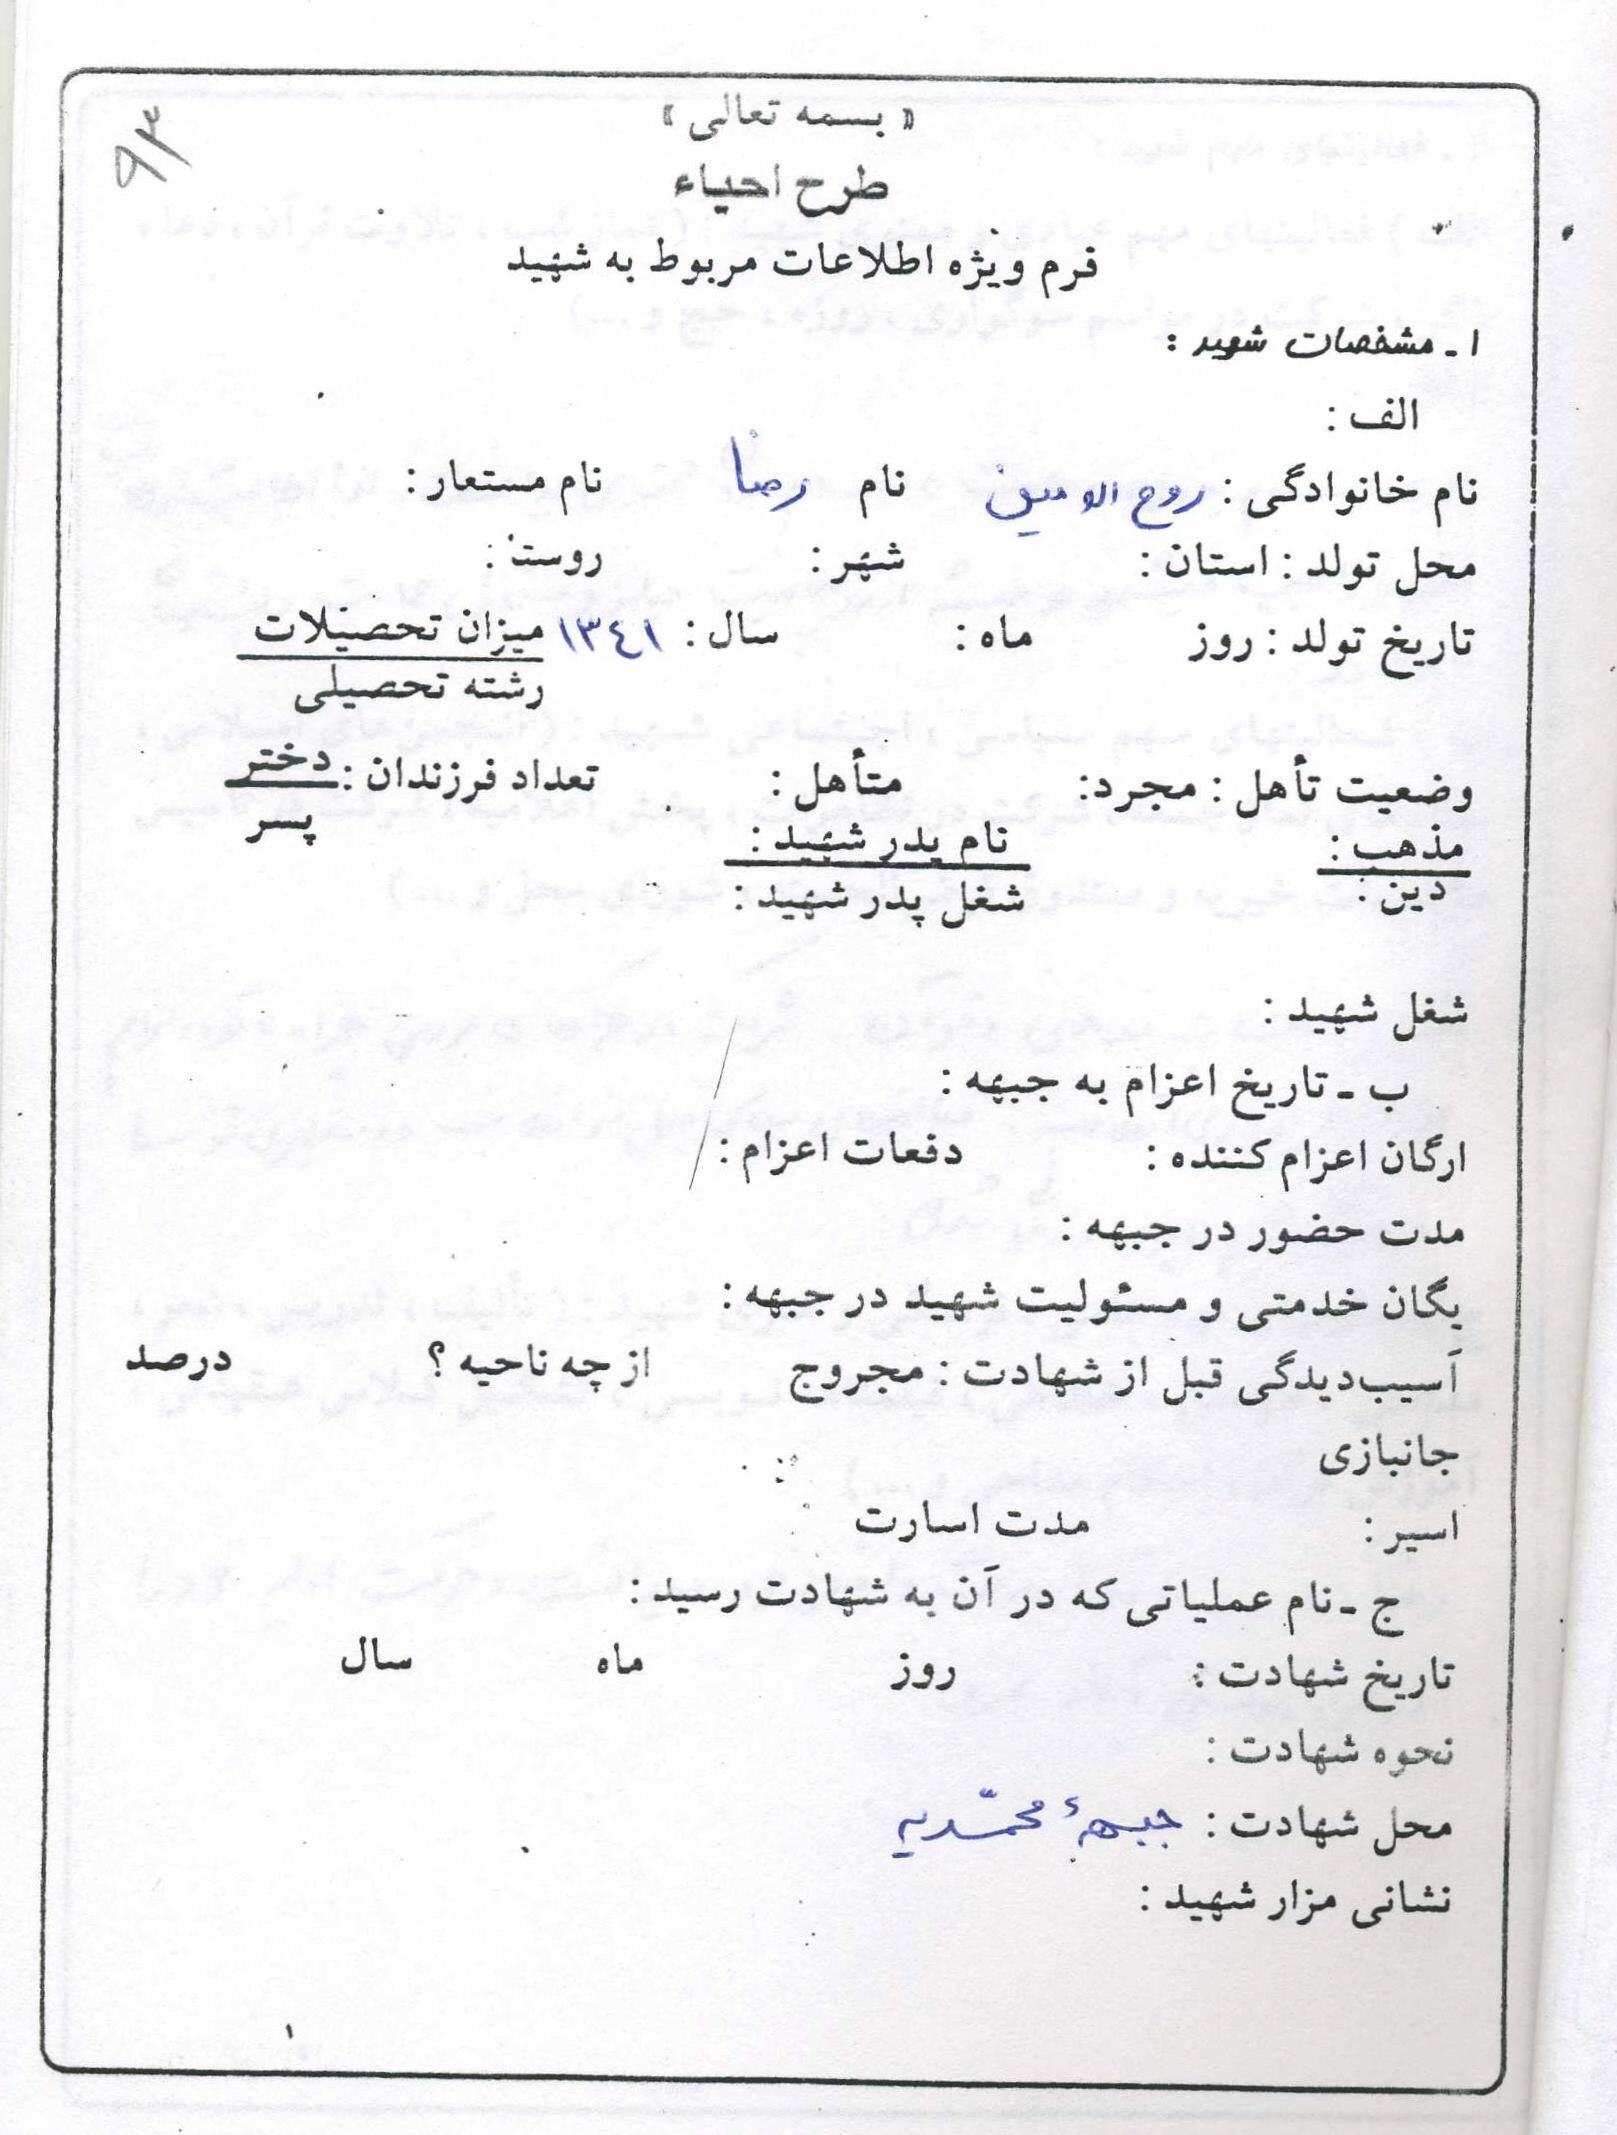 ۹/۳
« بسمه تعالی »
طرح احیاء
فرم ویژه اطلاعات مربوط به شهید
۱ ـ مشخصات شهید :
الف :
نام خانوادگی : روح الامین نام رضا نام مستعار :
محل تولد : استان : شهر : روستا :
تاریخ تولد : روز ماه : سال : ۱۳۴۱ میزان تحصیلات
رشته تحصیلی
وضعیت تأهل : مجرد: متأهل : تعداد فرزندان : دختر
پسر
مذهب : نام پدر شهید :
دین : شغل پدر شهید :
شغل شهید :
ب ـ تاریخ اعزام به جبهه :
ارگان اعزام کننده : دفعات اعزام :
مدت حضور در جبهه :
یگان خدمتی و مسئولیت شهید در جبهه :
آسیب‌دیدگی قبل از شهادت : مجروح از چه ناحیه ؟ درصد
جانبازی
اسیر : مدت اسارت
ج ـ نام عملیاتی که در آن به شهادت رسید :
تاریخ شهادت : روز ماه سال
نحوه شهادت :
محل شهادت : جبههٔ محمّدیه
نشانی مزار شهید :
۱